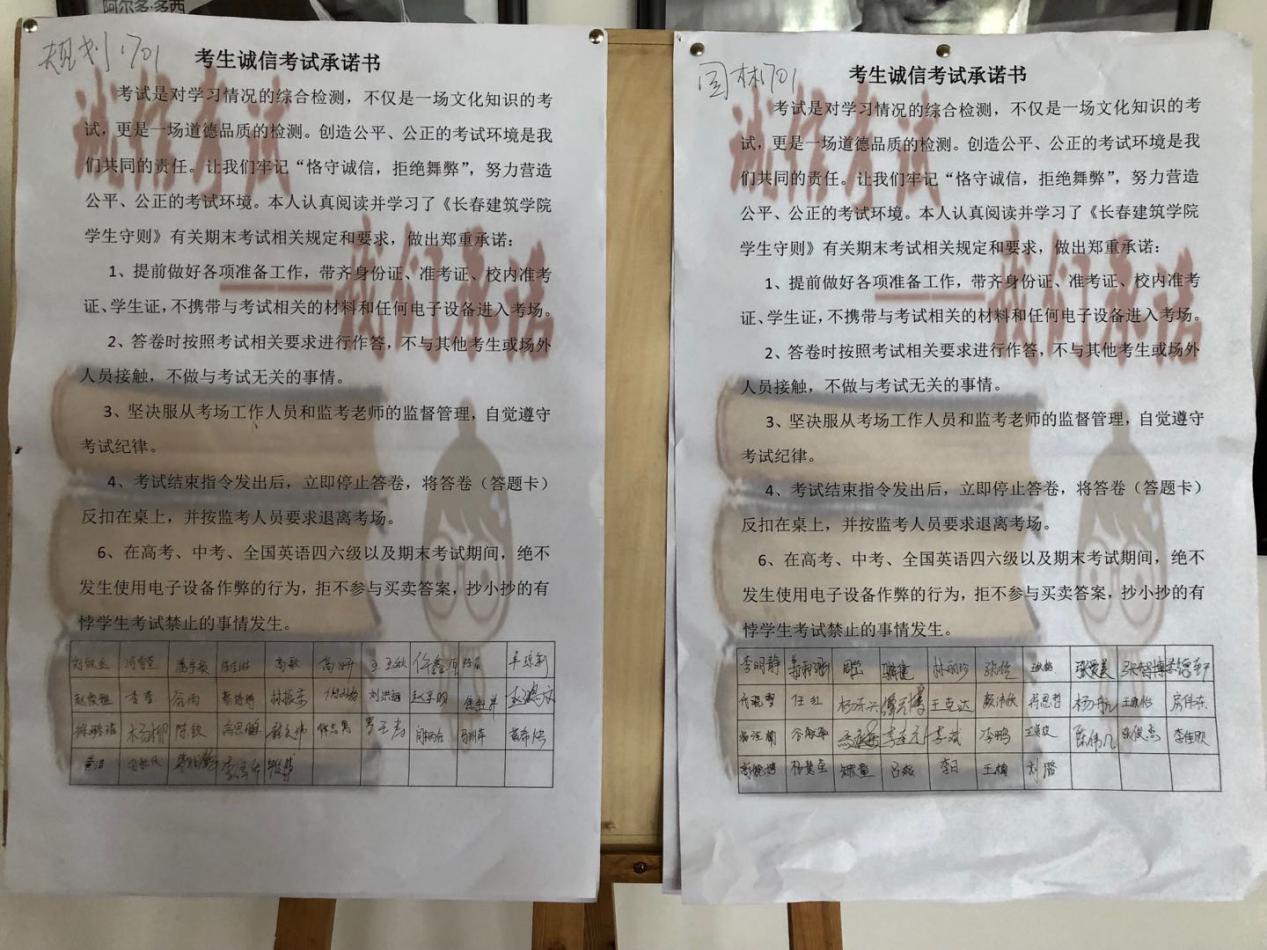 阿尔多·多西
规划1701
考生诚信考试承诺书
诚信考试
——我们承诺
考试是对学习情况的综合检测，不仅是一场文化知识的考
试，更是一场道德品质的检测。创造公平、公正的考试环境是我
们共同的责任。让我们牢记“恪守诚信，拒绝舞弊”，努力营造
公平、公正的考试环境。本人认真阅读并学习了《长春建筑学院
学生守则》有关期末考试相关规定和要求，做出郑重承诺：
1、提前做好各项准备工作，带齐身份证、准考证、校内准考
证、学生证，不携带与考试相关的材料和任何电子设备进入考场。
2、答卷时按照考试相关要求进行作答，不与其他考生或场外
人员接触，不做与考试无关的事情。
3、坚决服从考场工作人员和监考老师的监督管理，自觉遵守
考试纪律。
4、考试结束指令发出后，立即停止答卷，将答卷（答题卡）
反扣在桌上，并按监考人员要求退离考场。
6、在高考、中考、全国英语四六级以及期末考试期间，绝不
发生使用电子设备作弊的行为，拒不参与买卖答案，抄小抄的有
悖学生考试禁止的事情发生。
园林1701
考生诚信考试承诺书
诚信考试
——我们承诺
考试是对学习情况的综合检测，不仅是一场文化知识的考
试，更是一场道德品质的检测。创造公平、公正的考试环境是我
们共同的责任。让我们牢记“恪守诚信，拒绝舞弊”，努力营造
公平、公正的考试环境。本人认真阅读并学习了《长春建筑学院
学生守则》有关期末考试相关规定和要求，做出郑重承诺：
1、提前做好各项准备工作，带齐身份证、准考证、校内准考
证、学生证，不携带与考试相关的材料和任何电子设备进入考场。
2、答卷时按照考试相关要求进行作答，不与其他考生或场外
人员接触，不做与考试无关的事情。
3、坚决服从考场工作人员和监考老师的监督管理，自觉遵守
考试纪律。
4、考试结束指令发出后，立即停止答卷，将答卷（答题卡）
反扣在桌上，并按监考人员要求退离考场。
6、在高考、中考、全国英语四六级以及期末考试期间，绝不
发生使用电子设备作弊的行为，拒不参与买卖答案，抄小抄的有
悖学生考试禁止的事情发生。
李明静
王克达
李鹏
李佳欣
李日 刘璐